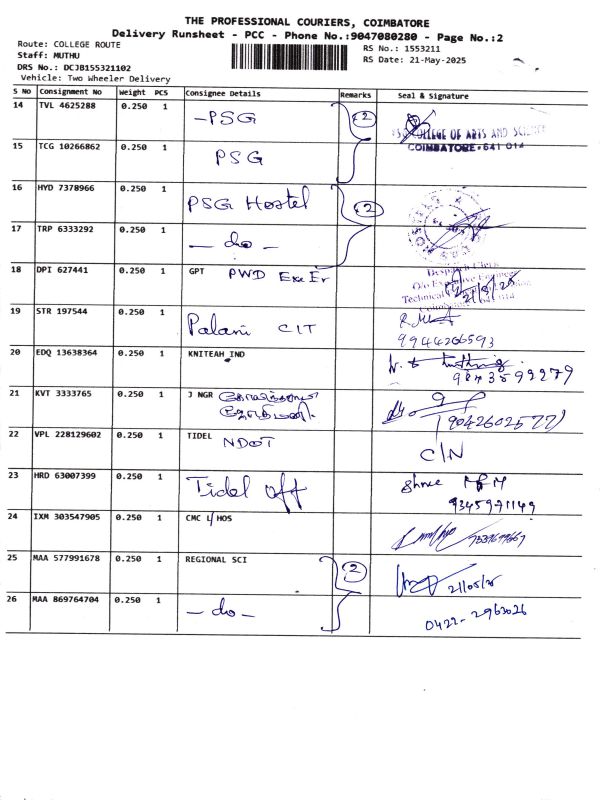 THE PROFESSIONAL COURIERS, COIMBATORE
Delivery Runsheet - PCC - Phone No.:9047080280 - Page No.:2
Route: COLLEGE ROUTE
RS No.: 1553211
Staff: MUTHU
RS Date: 21-May-2025
DRS No.: DCJB155321102
Vehicle: Two Wheeler Delivery
S No Consignment No Weight PCS Consignee Details Remarks Seal & Signature
14 TVL 4625288 0.250 1 -PSG 2
COLLEGE OF ARTS AND SCIENCE
COIMBATORE-641 014
15 TCG 10266862 0.250 1 PSG
16 HYD 7378966 0.250 1 PSG Hostel 2
17 TRP 6333292 0.250 1 - do -
18 DPI 627441 0.250 1 GPT PWD Exe Er
Despatch Clerk
O/o Executive Engineer
Technical
21/5/25
19 STR 197544 0.250 1 Palani CIT
9944266593
20 EDQ 13638364 0.250 1 KNITEAH IND
9843592279
21 KVT 3333765 0.250 1 J NGR
22 VPL 228129602 0.250 1 TIDEL NDOT C/N
23 HRD 63007399 0.250 1 Tidel off
9345971149
24 IXM 303547905 0.250 1 CMC L HOS
25 MAA 577991678 0.250 1 REGIONAL SCI 2
21/05/25
26 MAA 869764704 0.250 1 - do -
0422-2963026